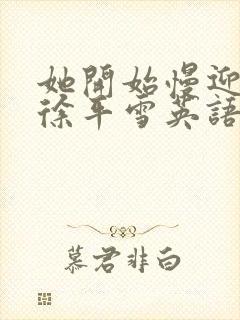 她開始慢迎
徐平雪英語
慕君非白